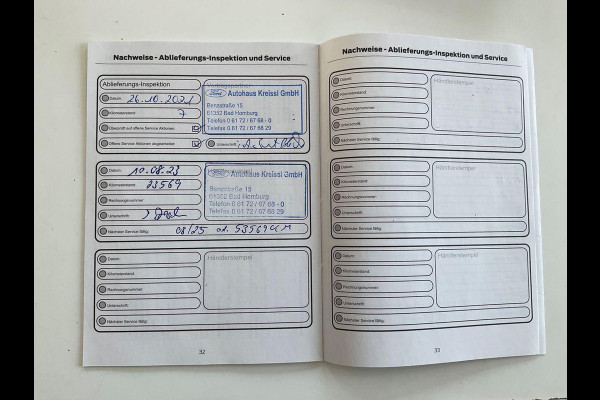 Nachweise - Ablieferungs-Inspektion und Service
Ablieferungs-Inspektion
Datum: 26.10.2021
Kilometerstand: 7
Überprüft auf offene Service Aktionen:
Offene Service Aktionen abgearbeitet:
Unterschrift:
Ford Autohaus Kreissl GmbH
Benzstraße 15
61352 Bad Homburg
Telefon 0 61 72 / 67 68 - 0
Telefax 0 61 72 / 67 68 29
Datum: 10.08.23
Kilometerstand: 23569
Rechnungsnummer:
Unterschrift:
Nächster Service fällig: 08/25 od. 53569 KM
Ford Autohaus Kreissl GmbH
Benzstraße 15
61352 Bad Homburg
Telefon 0 61 72 / 67 68 - 0
Telefax 0 61 72 / 67 68 29
Datum:
Kilometerstand:
Rechnungsnummer:
Unterschrift:
Nächster Service fällig:
Händlerstempel
32
Nachweise - Ablieferungs-Inspektion und Service
Datum:
Kilometerstand:
Rechnungsnummer:
Unterschrift:
Nächster Service fällig:
Händlerstempel
Datum:
Kilometerstand:
Rechnungsnummer:
Unterschrift:
Nächster Service fällig:
Händlerstempel
Datum:
Kilometerstand:
Rechnungsnummer:
Unterschrift:
Nächster Service fällig:
Händlerstempel
33